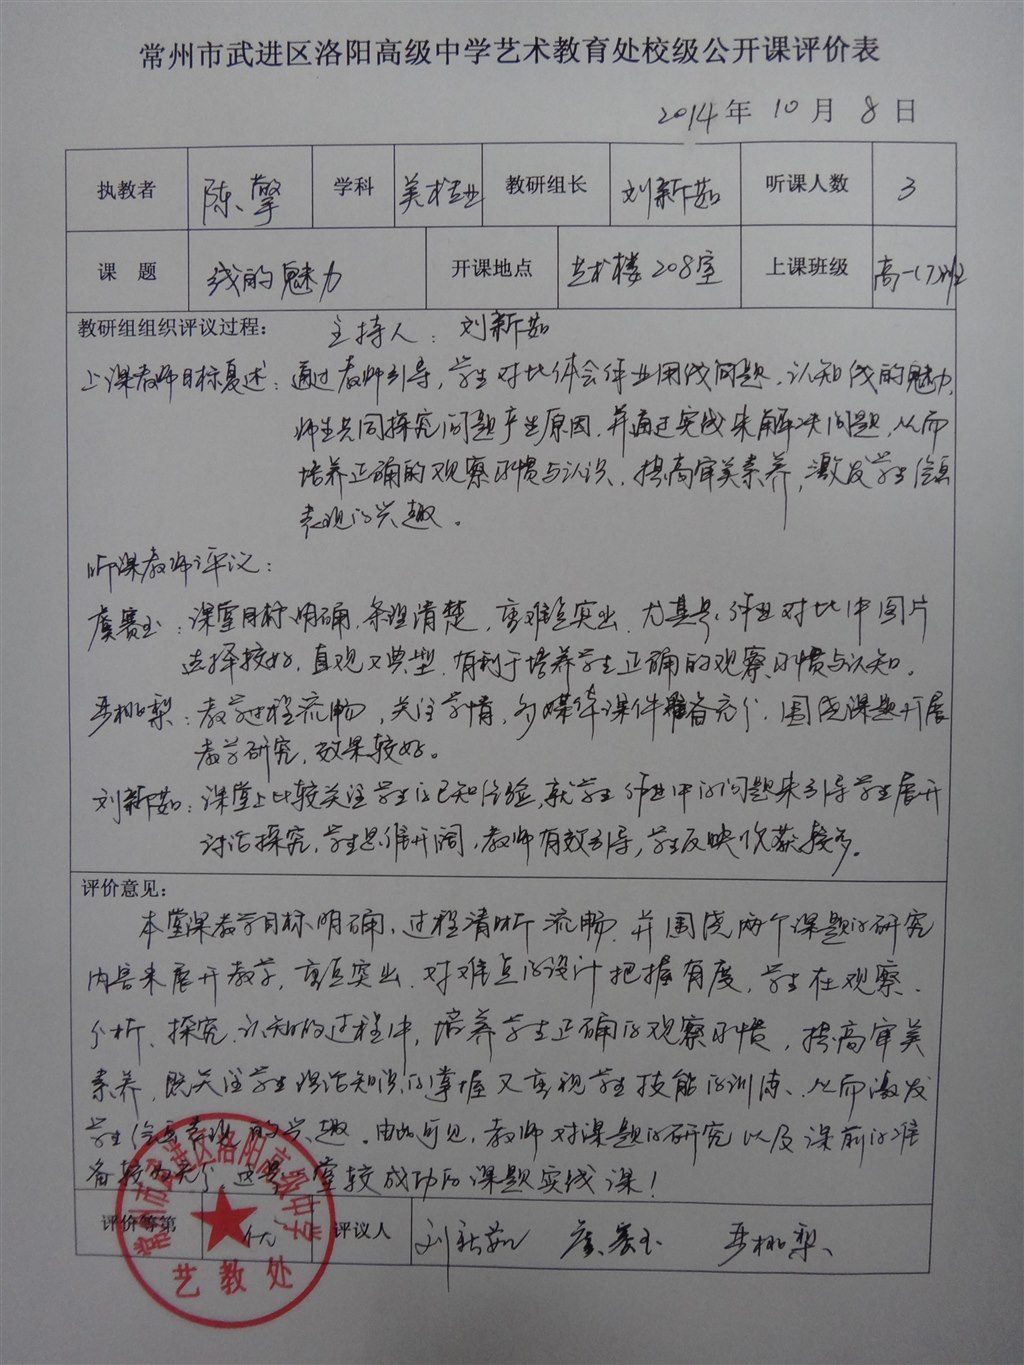 常州市武进区洛阳高级中学艺术教育处校级公开课评价表
2014年 10月 8日
执教者 陈擎 学科 美术专业 教研组长 刘新茹 听课人数 3
课 题 线的魅力 开课地点 艺术楼208室 上课班级 高一(7)班
教研组组织评议过程： 主持人：刘新茹
上课教师目标复述：通过教师引导，学生对比体会作业用线问题，认知线的魅力，
师生共同探究问题产生原因，并通过实践来解决问题，从而
培养正确的观察习惯与认识，提高审美素养，激发学生绘画
表现的兴趣。
听课教师评议：
虞赛玉：课堂目标明确，条理清楚，重难点突出，尤其是，作业对比中图片
选择较好，直观又典型，有利于培养学生正确的观察习惯与认知。
桃梨：教学过程流畅，关注学情，多媒体课件准备充分，围绕课题开展
教学研究，效果较好。
刘新茹：课堂上比较关注学生的已知经验，就学生作业中的问题来引导学生展开
讨论探究，学生思维开阔，教师有效引导，学生反映收获较多。
评价意见：
本堂课教学目标明确，过程清晰流畅，并围绕两个课题的研究
内容来展开教学，重点突出，对难点的设计把握有度，学生在观察、
分析、探究、认知的过程中，培养学生正确的观察习惯，提高审美
素养，既关注学生理论知识的掌握又重视学生技能的训练、从而激发
学生绘画表现的兴趣。由此可见，教师对课题的研究以及课前的准
备较为充分，这是一堂较成功的课题实践课！
评价等第 优 评议人 刘新茹 虞赛玉 桃梨
常州市武进区洛阳高级中学
艺教处